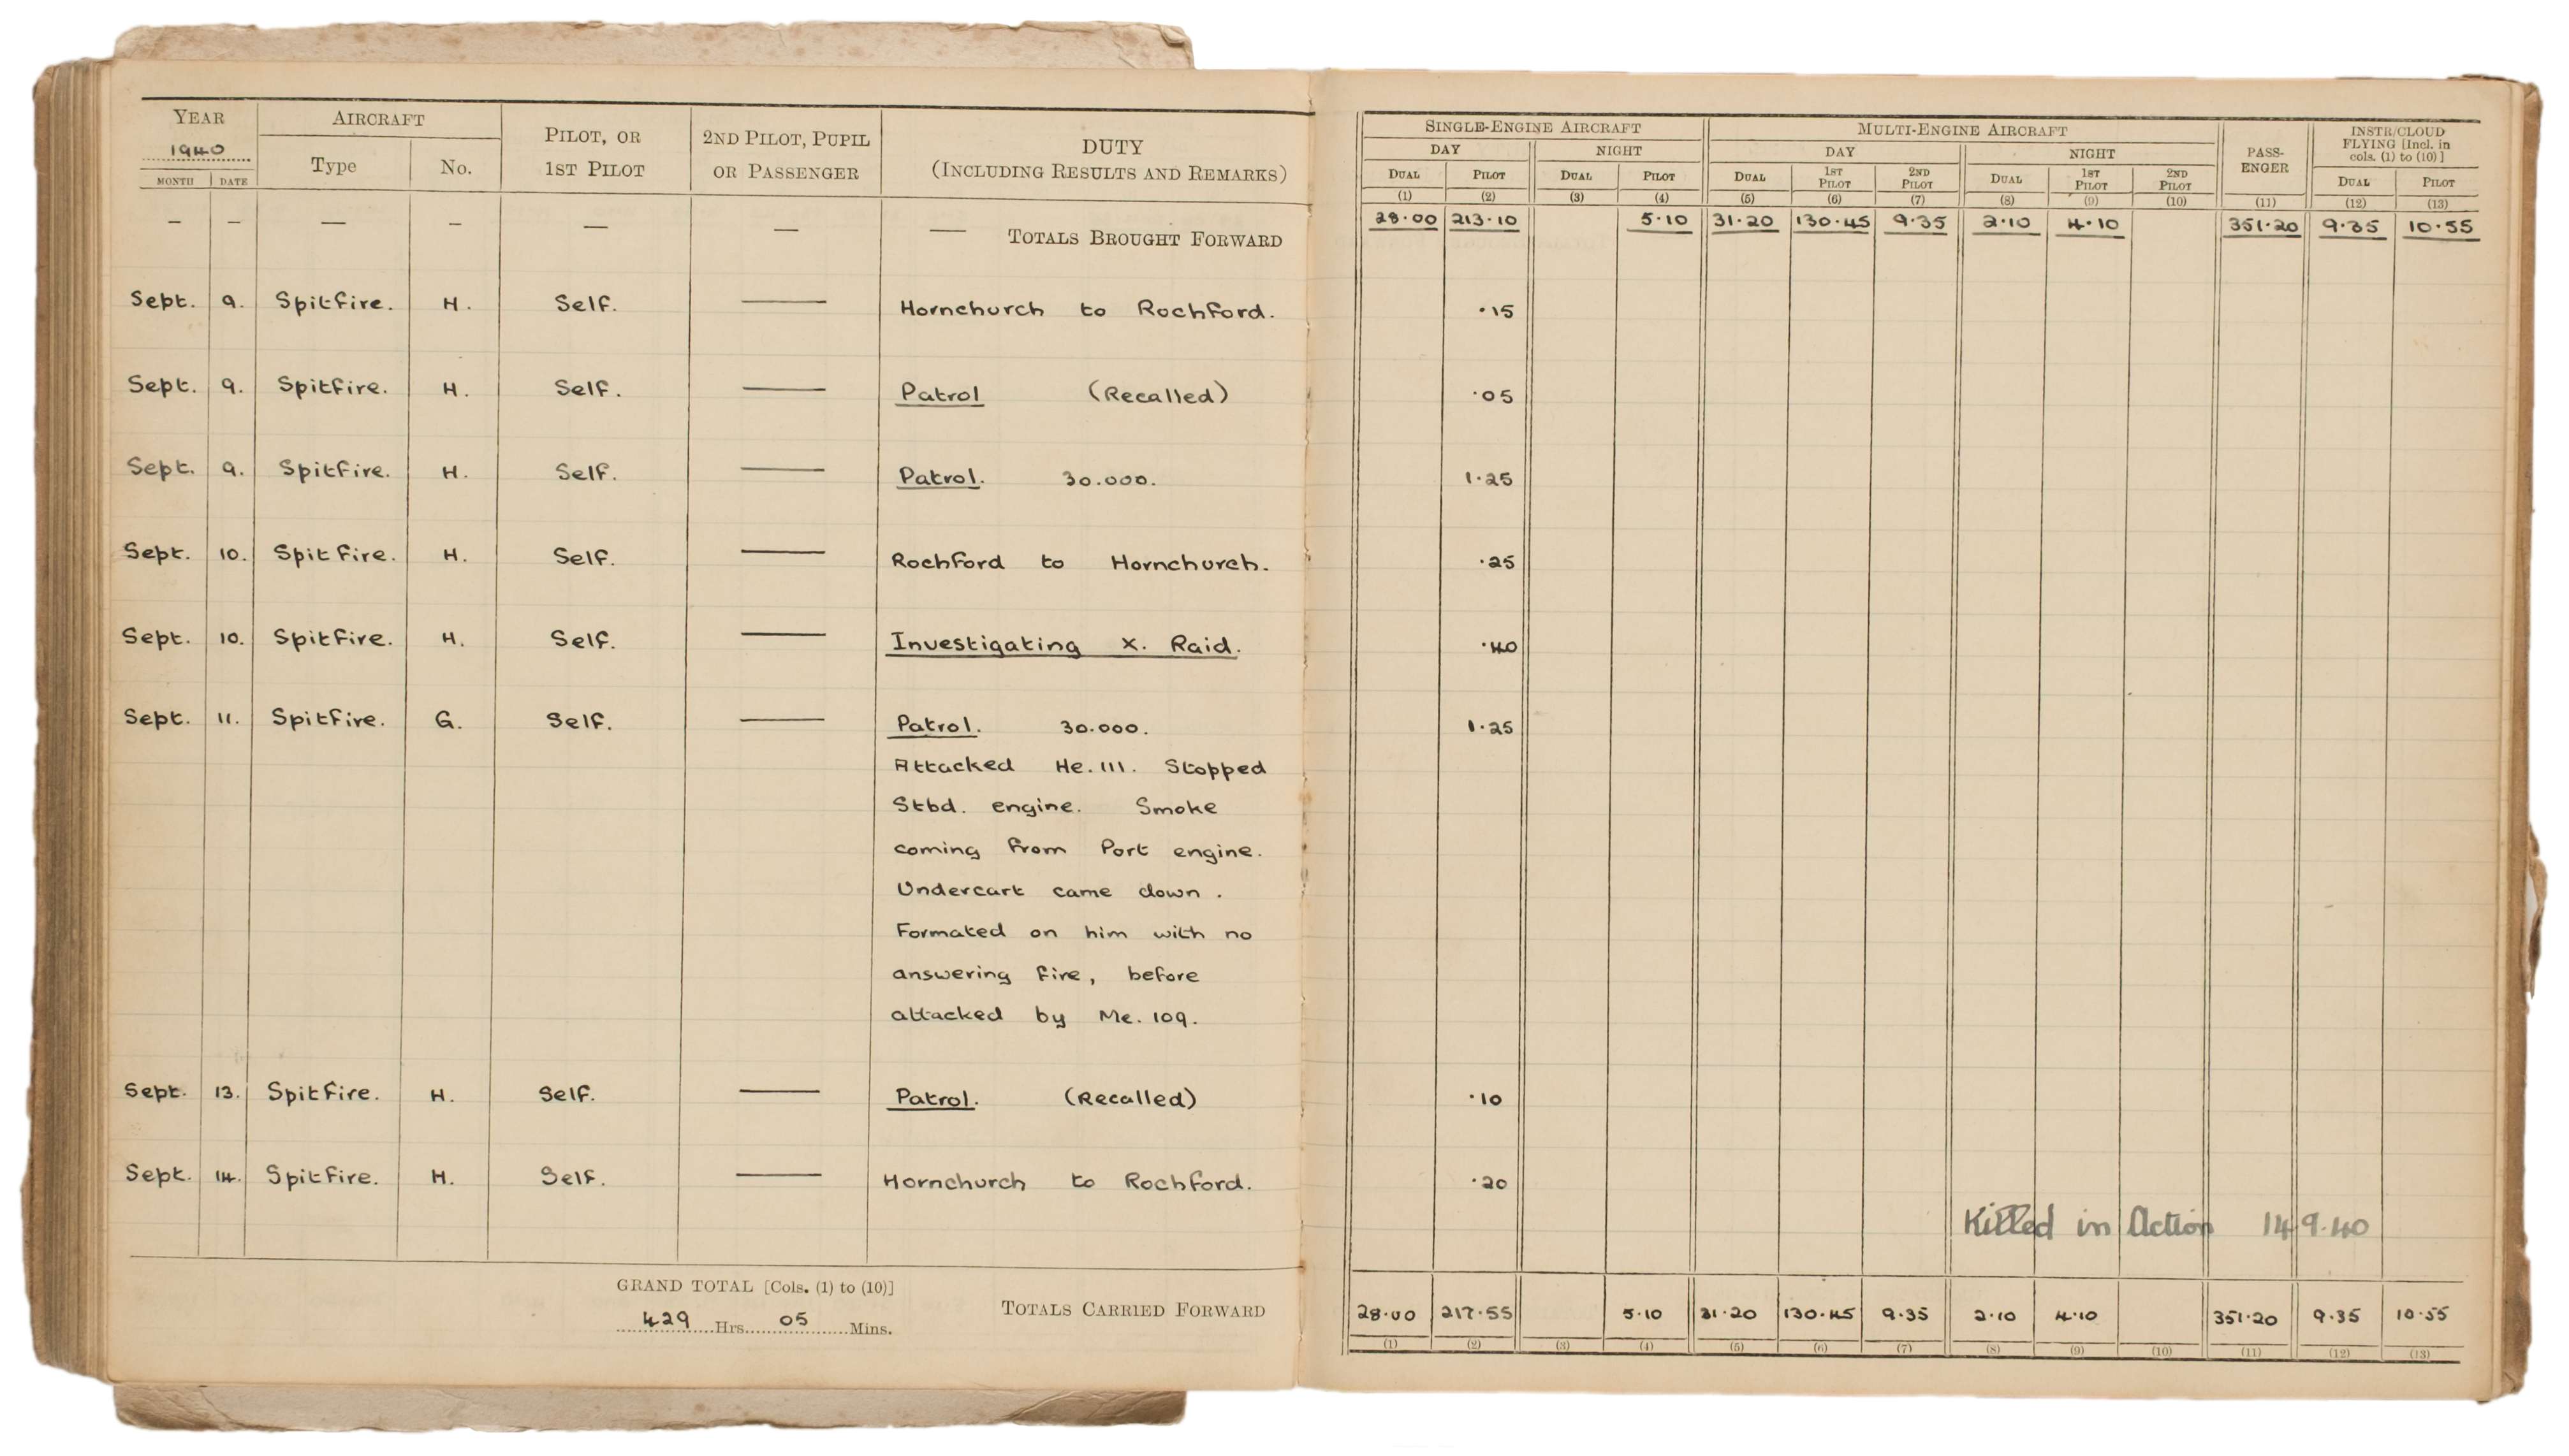 YEAR AIRCRAFT PILOT, OR 1ST PILOT 2ND PILOT, PUPIL OR PASSENGER DUTY (INCLUDING RESULTS AND REMARKS)
1940 Type No.
MONTH DATE
— — — — — — — TOTALS BROUGHT FORWARD
Sept. 9. Spitfire. H. Self. — Hornchurch to Rochford.
Sept. 9. Spitfire. H. Self. — Patrol (Recalled)
Sept. 9. Spitfire. H. Self. — Patrol. 30.000.
Sept. 10. Spitfire. H. Self. — Rochford to Hornchurch.
Sept. 10. Spitfire. H. Self. — Investigating X. Raid.
Sept. 11. Spitfire. G. Self. — Patrol. 30.000.
Attacked He.111. Stopped
Stbd. engine. Smoke
coming from Port engine.
Undercart came down.
Formated on him with no
answering fire, before
attacked by Me. 109.
Sept. 13. Spitfire. H. Self. — Patrol. (Recalled)
Sept. 14. Spitfire. H. Self. — Hornchurch to Rochford.
GRAND TOTAL [Cols. (1) to (10)]
429 Hrs. 05 Mins.
TOTALS CARRIED FORWARD
SINGLE-ENGINE AIRCRAFT MULTI-ENGINE AIRCRAFT PASS-ENGER INSTR/CLOUD FLYING [Incl. in cols. (1) to (10)]
DAY NIGHT DAY NIGHT
DUAL PILOT DUAL PILOT DUAL 1ST PILOT 2ND PILOT DUAL 1ST PILOT 2ND PILOT DUAL PILOT
(1) (2) (3) (4) (5) (6) (7) (8) (9) (10) (11) (12) (13)
28.00 213.10 5.10 31.20 130.45 9.35 2.10 4.10 351.20 9.35 10.55
.15
.05
1.25
.25
.40
1.25
.10
.20
Killed in Action 14 9.40
28.00 217.55 5.10 31.20 130.45 9.35 2.10 4.10 351.20 9.35 10.55
(1) (2) (3) (4) (5) (6) (7) (8) (9) (10) (11) (12) (13)